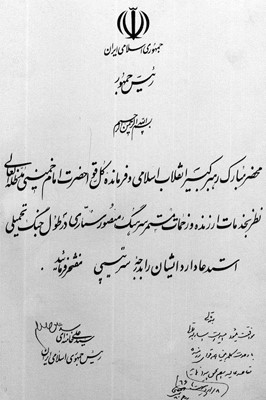 جمهوری اسلامی ایران
رئیس جمهور
بسم الله الرحمن الرحیم
محضر مبارک رهبر کبیر انقلاب اسلامی و فرمانده کل قوا حضرت امام خمینی مدظله العالی
نظر بخدمات ارزنده و زحمات مستمر سرهنگ منصور ستاری در طول جنگ تحمیلی
استدعا دارد ایشان را بدرجه سرتیپی مفتخر فرمائید.
سید علی خامنه‌ای
رئیس جمهوری اسلامی ایران